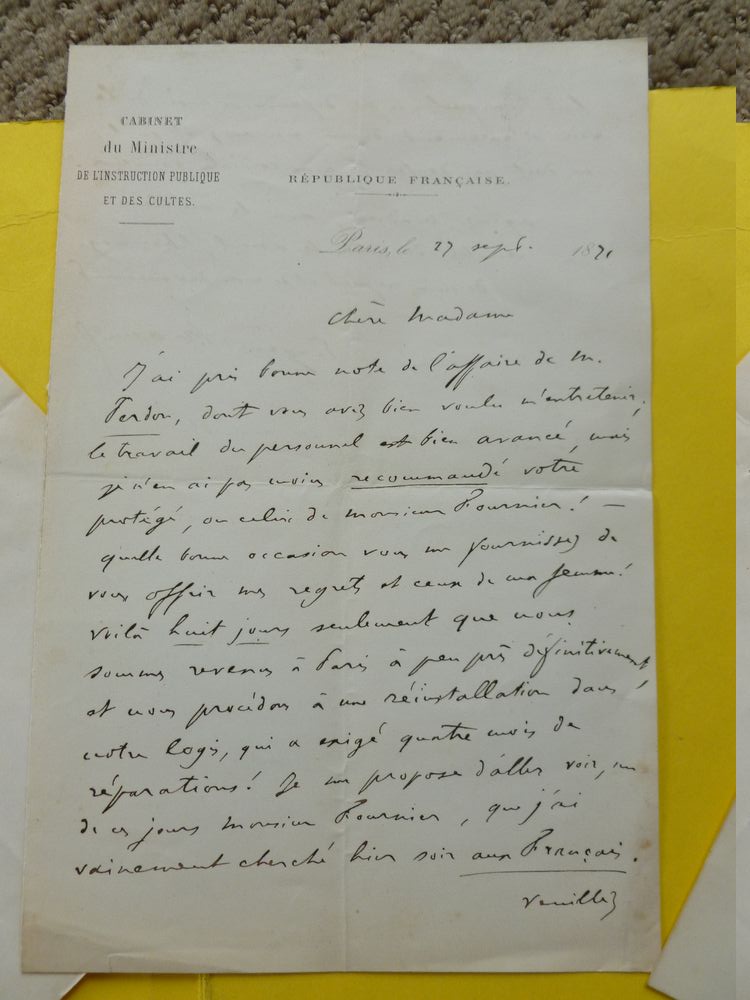 CABINET
du Ministre
DE L'INSTRUCTION PUBLIQUE
ET DES CULTES.
RÉPUBLIQUE FRANÇAISE.
Paris, le 27 sept. 1871
Chère Madame
J'ai pris bonne note de l'affaire de M.
Ferdon, dont vous avez bien voulu m'entretenir;
le travail du personnel est bien avancé, mais
je n'en ai pas moins recommandé votre
protégé, ou celui de Monsieur Fournier! —
quelle bonne occasion vous me fournissez de
vous offrir mes regrets et ceux de ma femme!
Voilà huit jours seulement que nous
sommes revenus à Paris à peu près définitivement,
et nous procédons à une réinstallation dans
notre logis, qui a exigé quatre mois de
réparations! Je me propose d'aller voir, un
de ces jours Monsieur Fournier, que j'ai
vainement cherché hier soir aux Français.
Veuillez